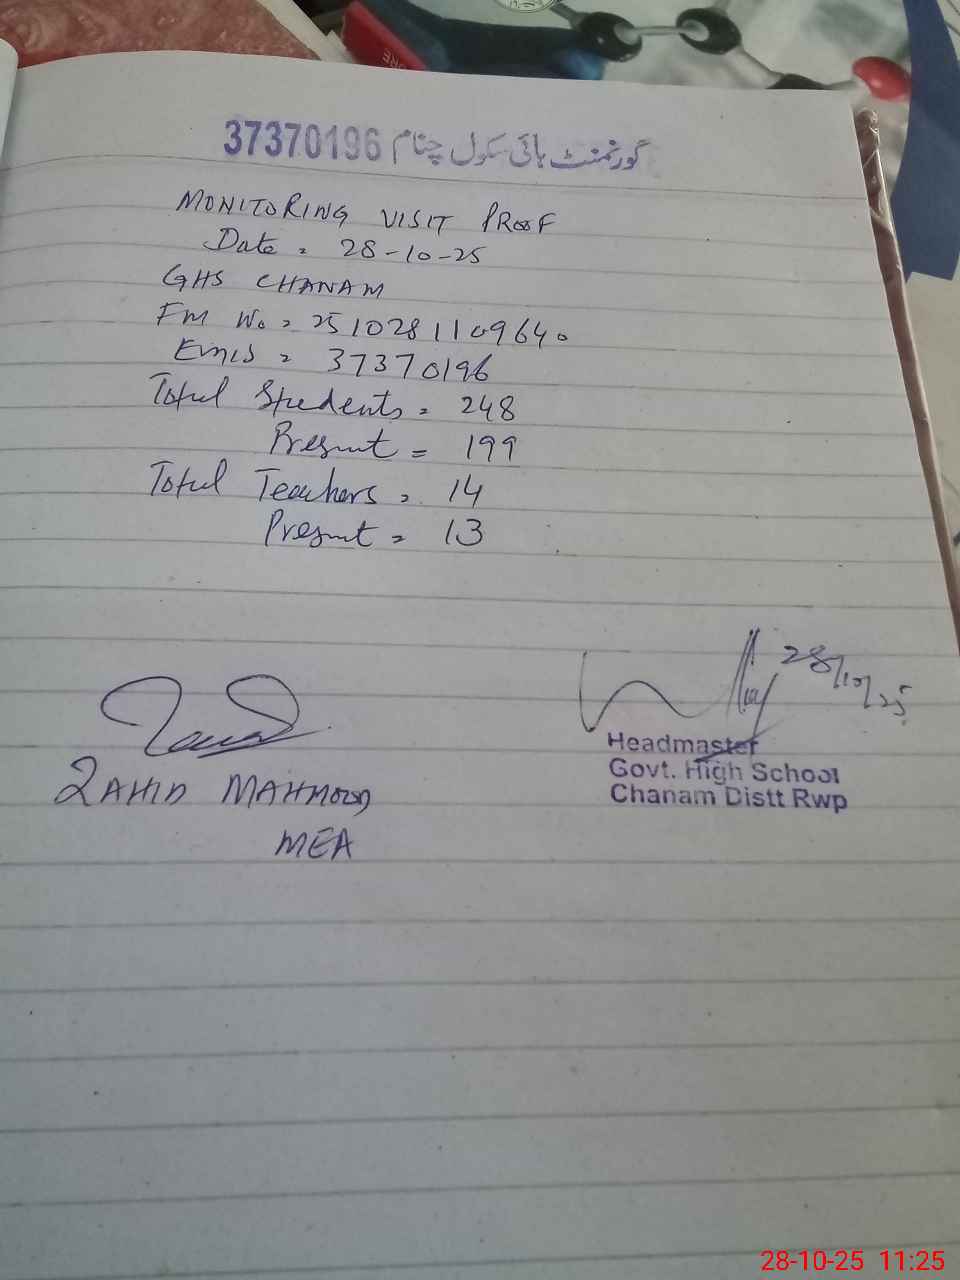 37370196 گورنمنٹ ہائی سکول چنام
MONITORING VISIT PROOF
Date = 28-10-25
GHS CHANAM
FM No = 2510281109640
Emis = 37370196
Total Students = 248
Present = 199
Total Teachers = 14
Present = 13
28/10/25
Headmaster
Govt. High School
Chanam Distt Rwp
ZAHID MAHMOOD
MEA
28-10-25 11:25